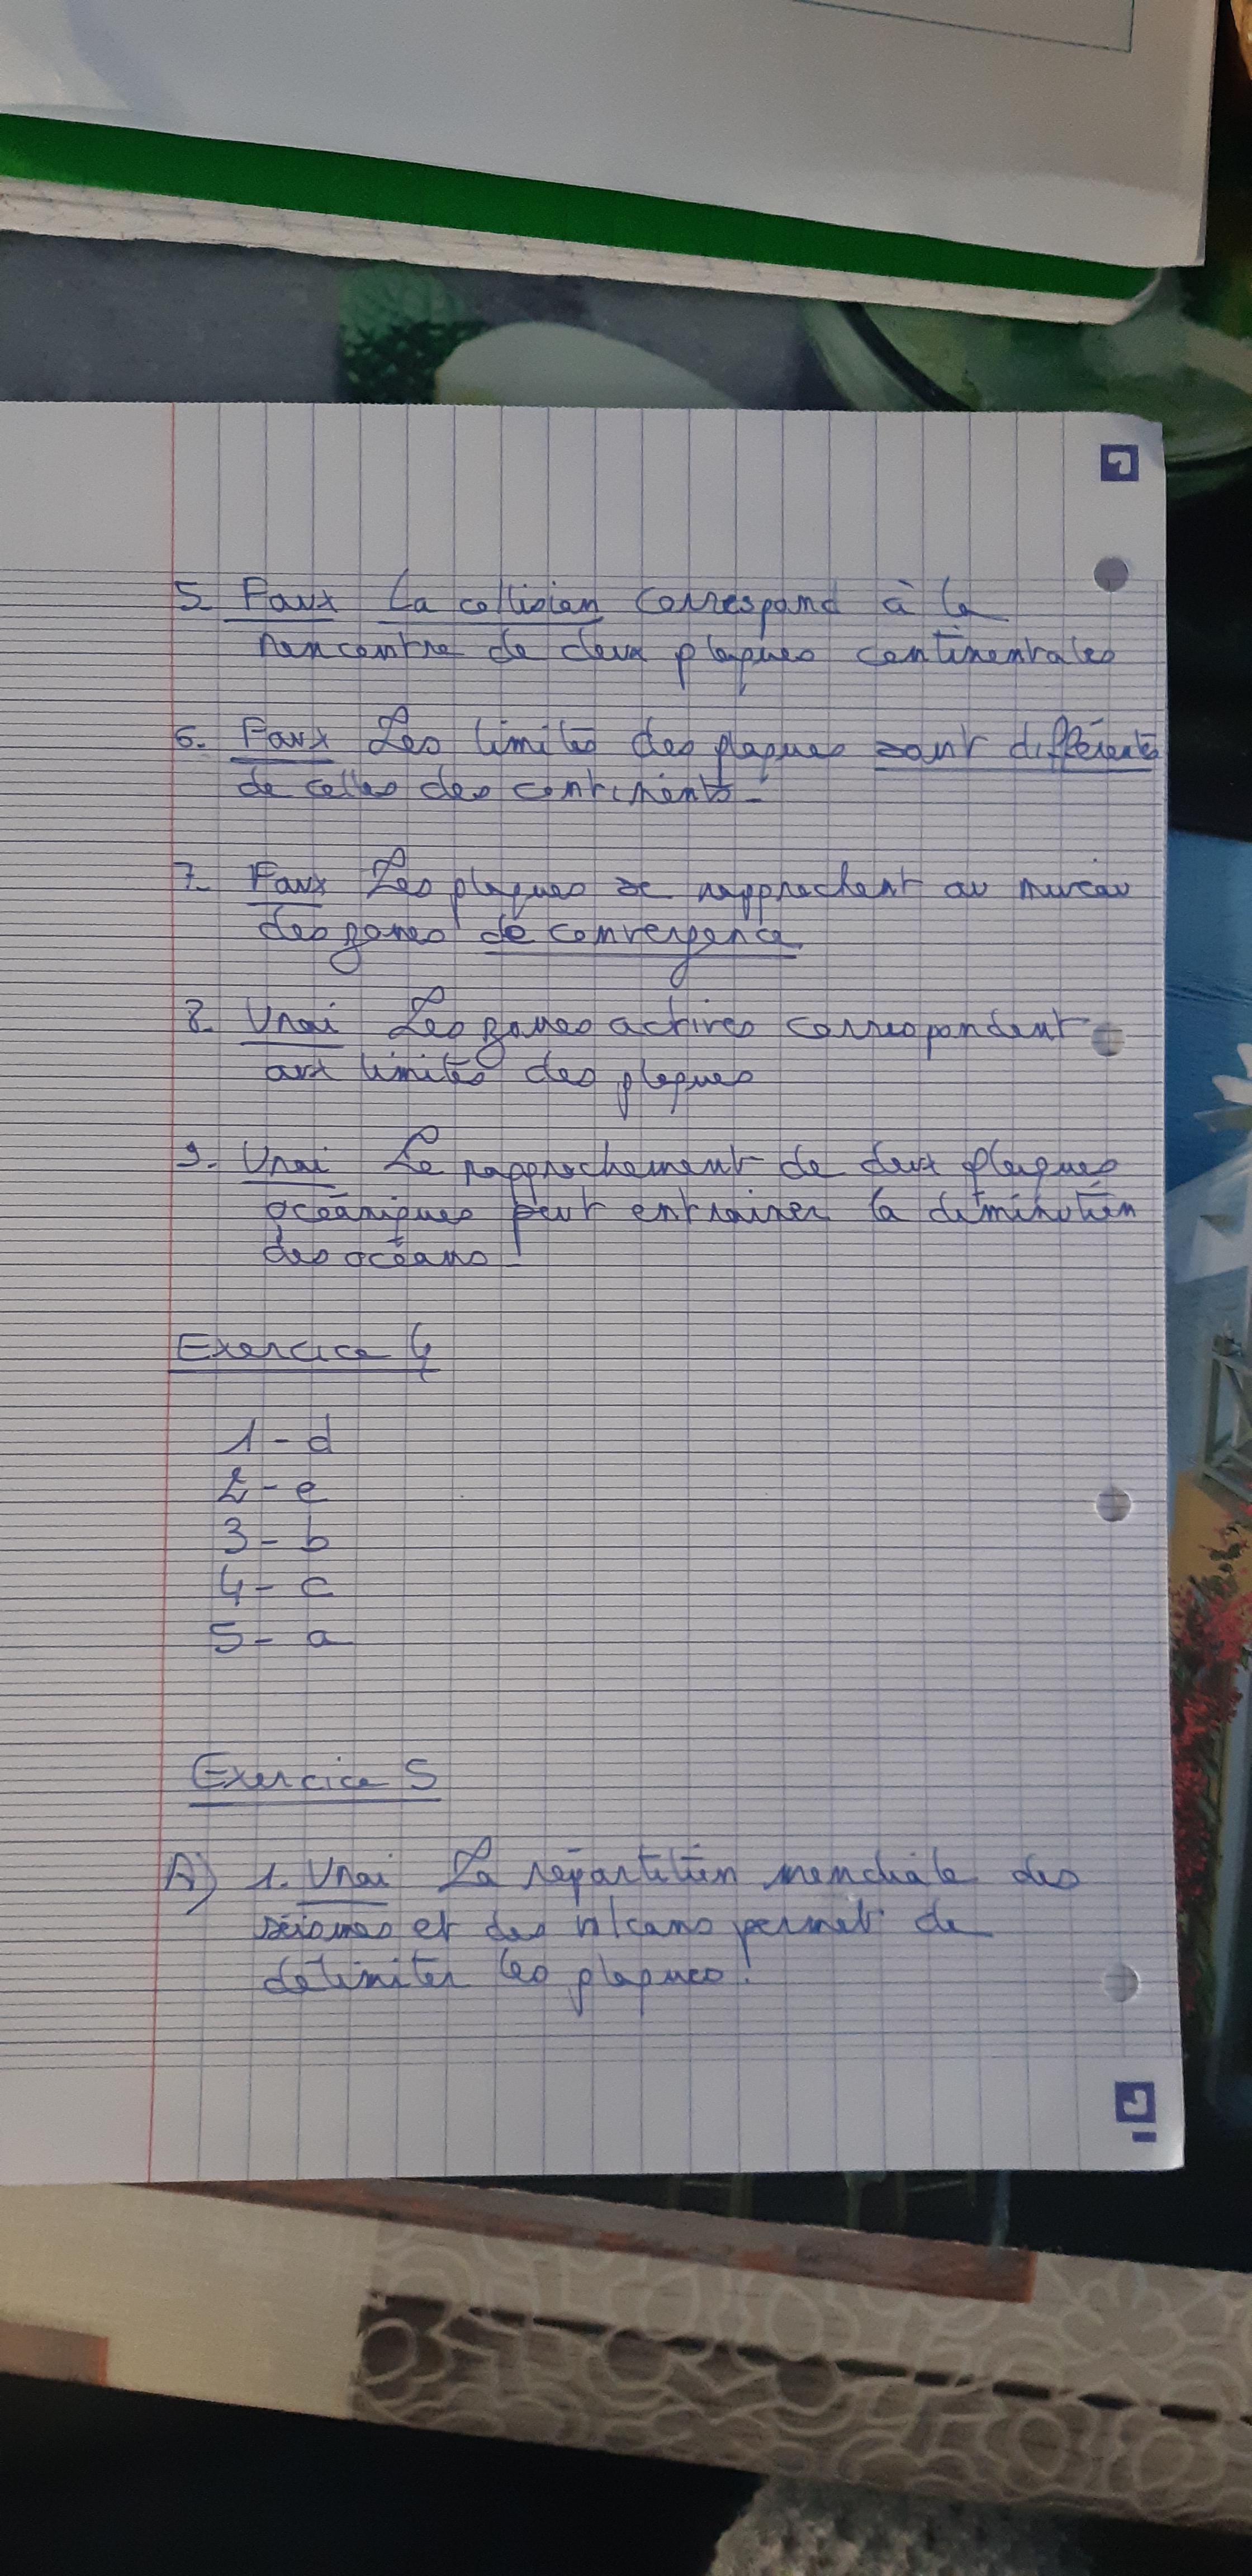 5. Faux La collision correspond à la
rencontre de deux plaques continentales
6. Faux Les limites des plaques sont différentes
de celles des continents.
7. Faux Les plaques se rapprochent au niveau
des zones de convergence.
8. Vrai Les zones actives correspondent
aux limites des plaques
9. Vrai Le rapprochement de deux plaques
océaniques peut entrainer la diminution
des océans.
Exercice 4
1 - d
2 - e
3 - b
4 - c
5 - a
Exercice 5
A) 1. Vrai La répartition mondiale des
séismes et des volcans permet de
délimiter les plaques.